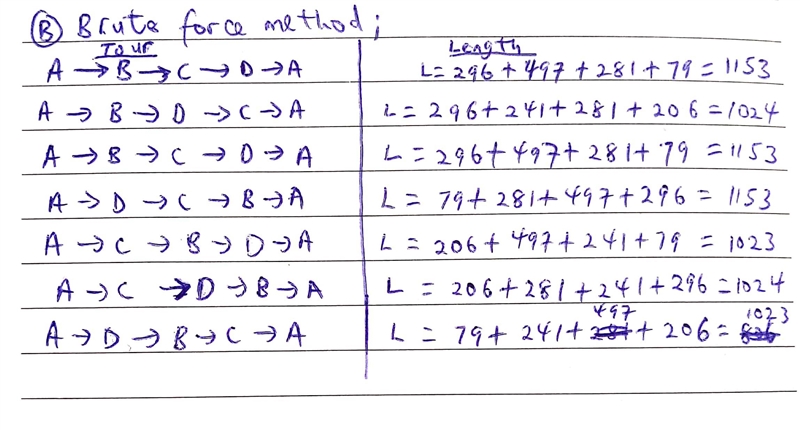 Ⓑ Brute force method;
Tour Length
A → B → C → D → A L = 296 + 497 + 281 + 79 = 1153
A → B → D → C → A L = 296 + 241 + 281 + 206 = 1024
A → B → C → D → A L = 296 + 497 + 281 + 79 = 1153
A → D → C → B → A L = 79 + 281 + 497 + 296 = 1153
A → C → B → D → A L = 206 + 497 + 241 + 79 = 1023
A → C → D → B → A L = 206 + 281 + 241 + 296 = 1024
497 1023
A → D → B → C → A L = 79 + 241 + 281 + 206 =